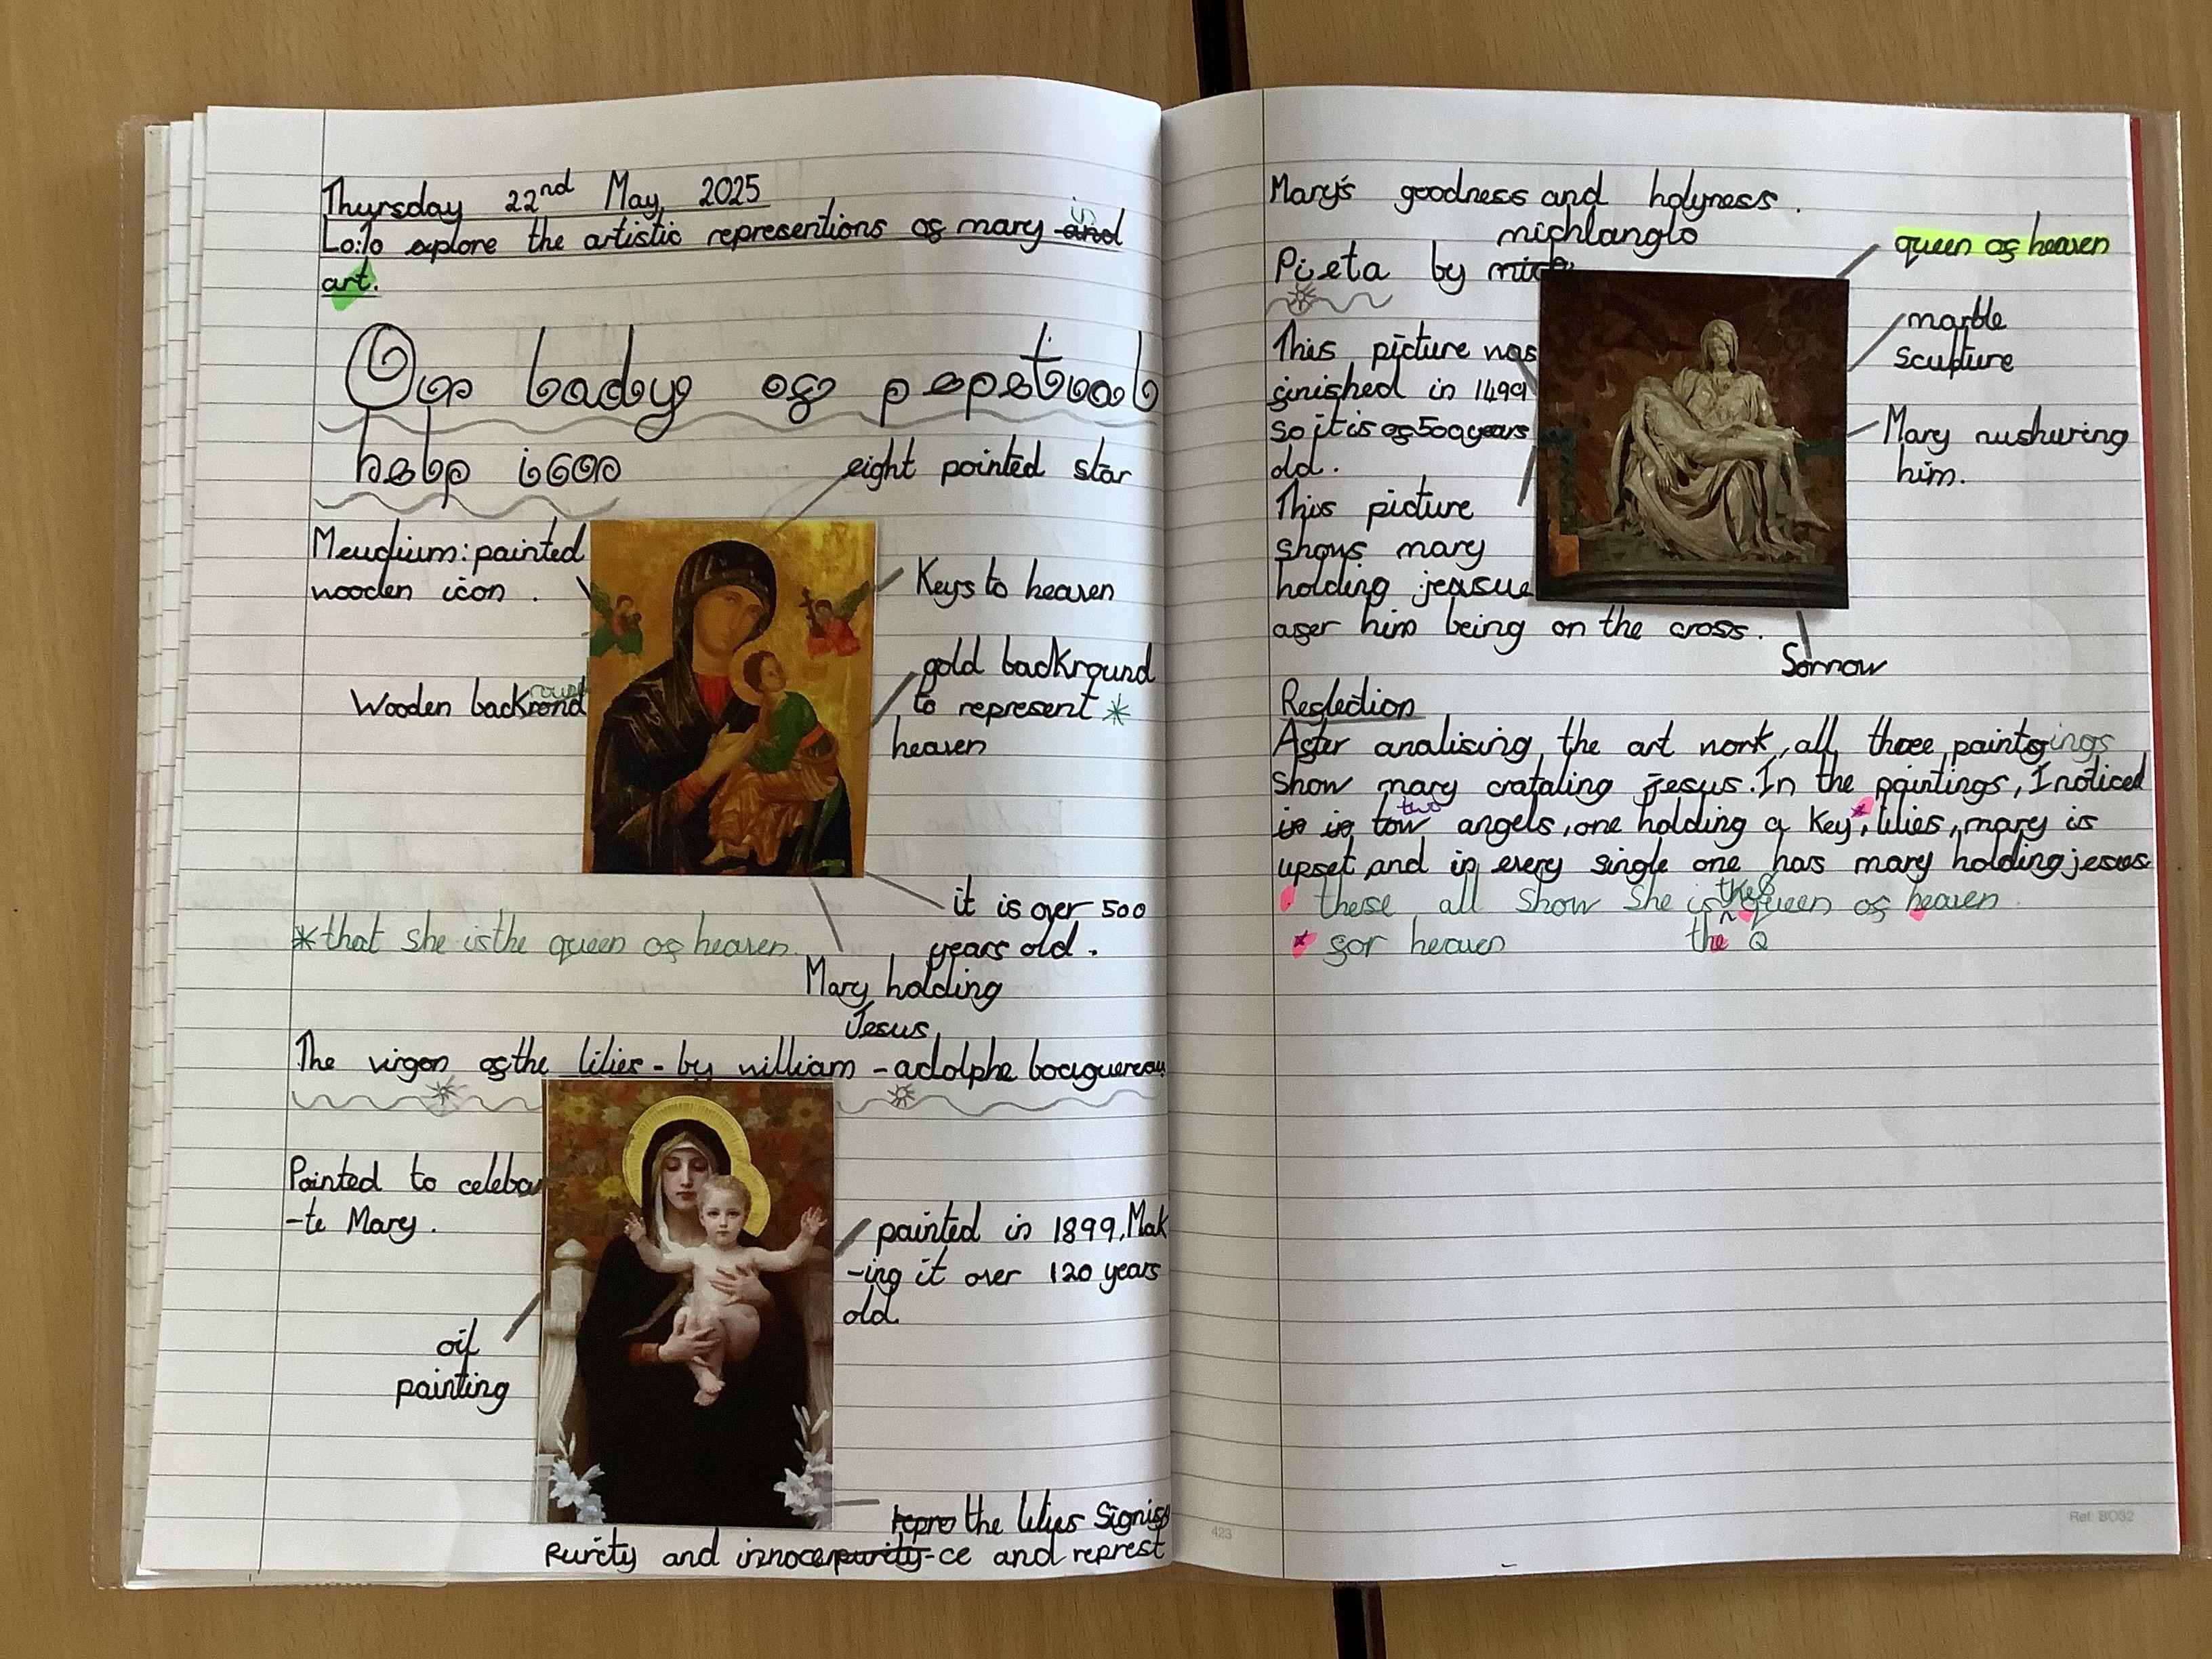 Thursday 22nd May, 2025
Lo:To explore the artistic representions of mary and in
art.
Our Lady of pepetual
help 1600
eight pointed star
Meudium: painted
wooden icon .
Keys to heaven
gold backround
to represent *
heaven
Wooden backrond round
it is over 500
years old .
*that she is the queen of heaven.
Mary holding
Jesus
The virgen of the lilies - by william - adolphe bouguereau
Painted to celebra
-te Mary .
painted in 1899, Mak
-ing it over 120 years
old.
oil
painting
repre the lilies Signify
Purity and innocenpurity-ce and represt
423
Mary's goodness and holyness .
michlanglo
Pieta by mice
queen of heaven
marble
Sculpture
This picture was
finished in 1499
so it is of 500 years
old .
Mary nushuring
him.
This picture
shows mary
holding jeasue
afer him being on the cross .
Sorrow
Reflection
After analising, the art work, all three paintgings
show mary crataling Jesus. In the paintings, I noticed
in in tow two angels, one holding a key*, lilies, mary is
upset, and in every single one has mary holding jesus
these all show she is the Queen of heaven
* for heaven the Q
Ref: BO32